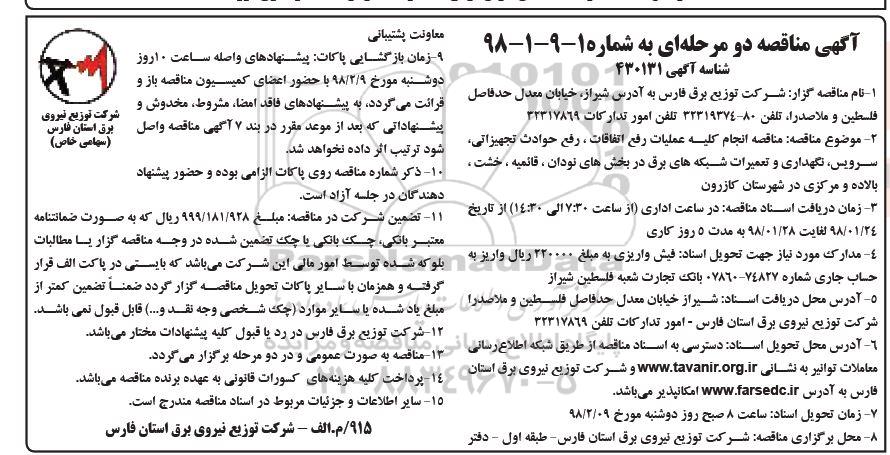 آگهی مناقصه دو مرحله‌ای به شماره ۱-۹-۱-۹۸
شناسه آگهی ۴۳۰۱۳۱
۱-نام مناقصه گزار: شرکت توزیع برق فارس به آدرس شیراز، خیابان معدل حدفاصل
فلسطین و ملاصدرا، تلفن ۸۰-۳۲۳۱۹۳۷۴ تلفن امور تدارکات ۳۲۳۱۷۸۶۹
۲- موضوع مناقصه: مناقصه انجام کلیه عملیات رفع اتفاقات ، رفع حوادث تجهیزاتی،
سرویس، نگهداری و تعمیرات شبکه های برق در بخش های نودان ، قائمیه ، خشت ،
بالاده و مرکزی در شهرستان کازرون
۳- زمان دریافت اسناد مناقصه: در ساعت اداری (از ساعت ۷:۳۰ الی ۱۴:۳۰) از تاریخ
۹۸/۰۱/۲۴ لغایت ۹۸/۰۱/۲۸ به مدت ۵ روز کاری
۴- مدارک مورد نیاز جهت تحویل اسناد: فیش واریزی به مبلغ ۲۲۰۰۰۰ ریال واریز به
حساب جاری شماره ۷۴۸۲۷-۰۷۸۶۰ بانک تجارت شعبه فلسطین شیراز
۵- آدرس محل دریافت اسناد: شیراز خیابان معدل حدفاصل فلسطین و ملاصدرا
شرکت توزیع نیروی برق استان فارس - امور تدارکات تلفن ۳۲۳۱۷۸۶۹
۶- آدرس محل تحویل اسناد: دسترسی به اسناد مناقصه از طریق شبکه اطلاع‌رسانی
معاملات توانیر به نشانی www.tavanir.org.ir و شرکت توزیع نیروی برق استان
فارس به آدرس www.farsedc.ir امکانپذیر می‌باشد.
۷- زمان تحویل اسناد: ساعت ۸ صبح روز دوشنبه مورخ ۹۸/۲/۰۹
۸- محل برگزاری مناقصه: شرکت توزیع نیروی برق استان فارس- طبقه اول - دفتر
معاونت پشتیبانی
۹-زمان بازگشایی پاکات: پیشنهادهای واصله ساعت ۱۰روز
دوشنبه مورخ ۹۸/۲/۹ با حضور اعضای کمیسیون مناقصه باز و
قرائت می‌گردد، به پیشنهادهای فاقد امضا، مشروط، مخدوش و
پیشنهاداتی که بعد از موعد مقرر در بند ۷ آگهی مناقصه واصل
شود ترتیب اثر داده نخواهد شد.
۱۰- ذکر شماره مناقصه روی پاکات الزامی بوده و حضور پیشنهاد
دهندگان در جلسه آزاد است.
۱۱- تضمین شرکت در مناقصه: مبلغ ۹۹۹/۱۸۱/۹۲۸ ریال که به صورت ضمانتنامه
معتبر بانکی، چک بانکی یا چک تضمین شده در وجه مناقصه گزار یا مطالبات
بلوکه شده توسط امور مالی این شرکت می‌باشد که بایستی در پاکت الف قرار
گرفته و همزمان با سایر پاکات تحویل مناقصه گزار گردد ضمناً تضمین کمتر از
مبلغ یاد شده یا سایر موارد (چک شخصی وجه نقد و...) قابل قبول نمی باشد.
۱۲- شرکت توزیع برق فارس در رد یا قبول کلیه پیشنهادات مختار می‌باشد.
۱۳-مناقصه به صورت عمومی و در دو مرحله برگزار می‌گردد.
۱۴-پرداخت کلیه هزینه‌های کسورات قانونی به عهده برنده مناقصه می‌باشد.
۱۵- سایر اطلاعات و جزئیات مربوط در اسناد مناقصه مندرج است.
۹۱۵/م.الف - شرکت توزیع نیروی برق استان فارس
شرکت توزیع نیروی
برق استان فارس
(سهامی خاص)